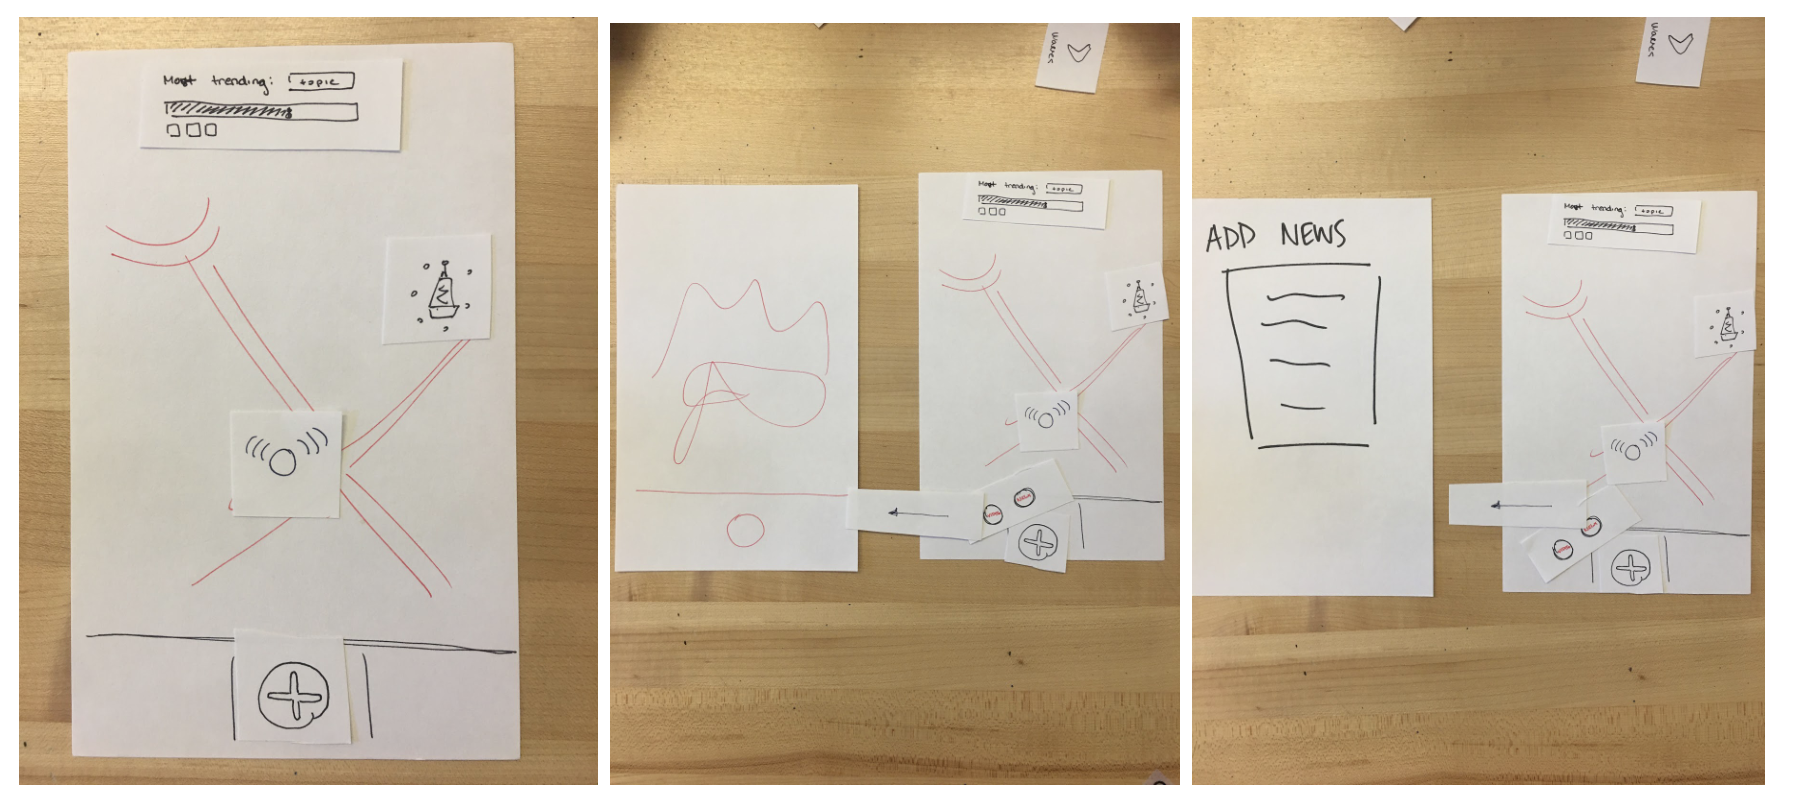 Most trending: topic
Waves
Most trending: topic
Waves
ADD NEWS
Most trending: topic